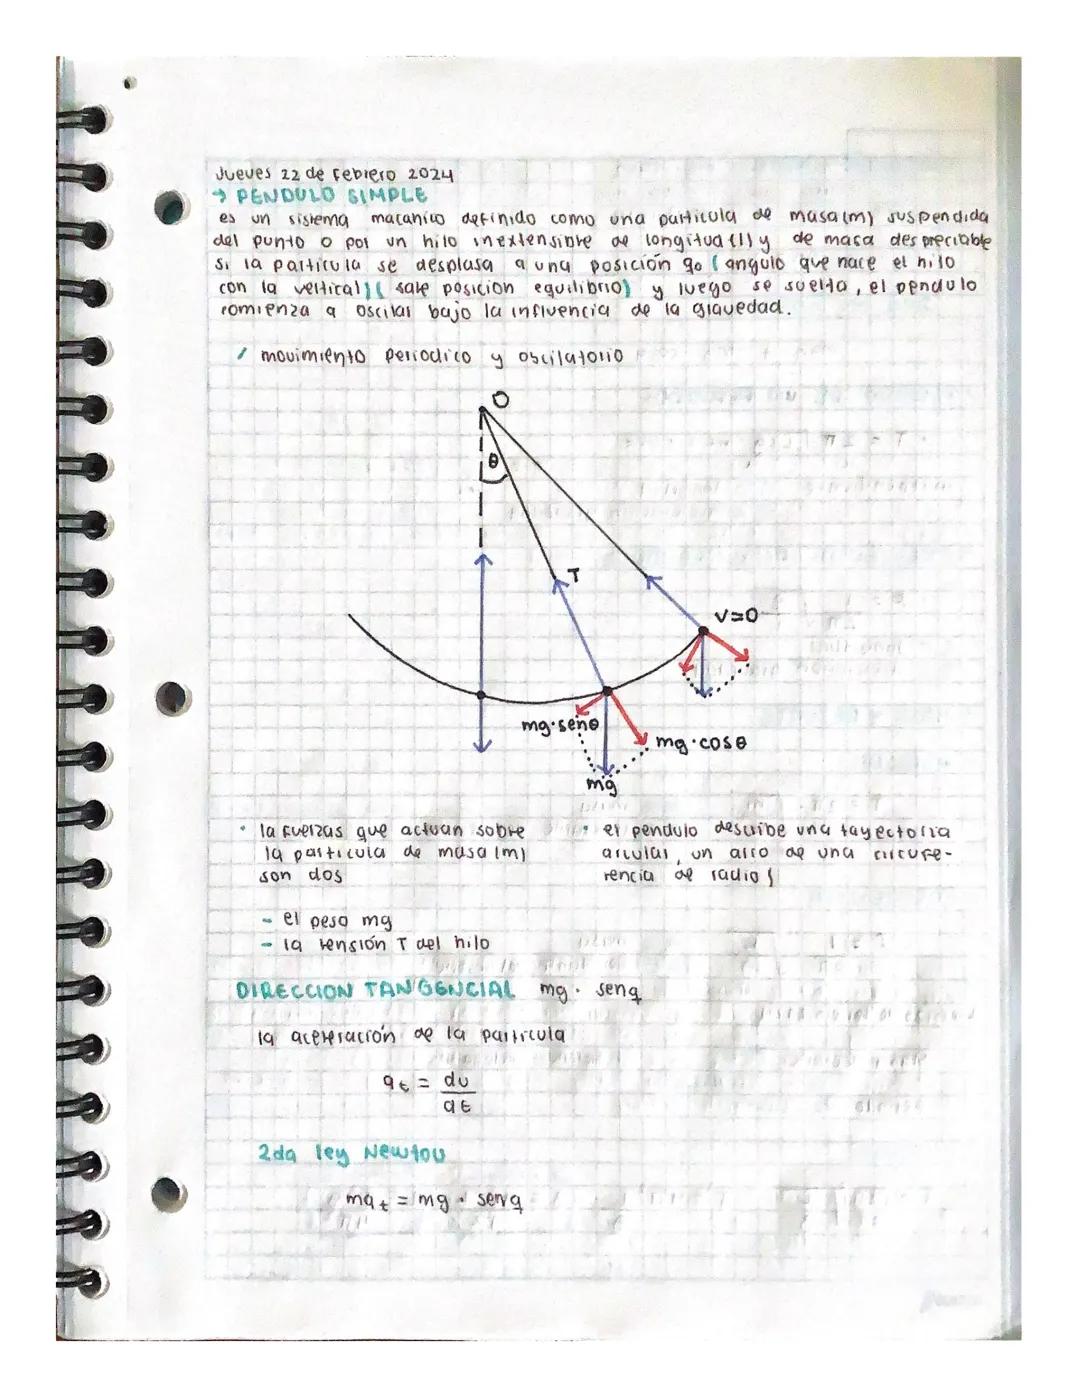 Jueves 22 de febrero 2024
→ PENDULO SIMPLE
es un sistema macanico definido como una particula de masa (m) suspendida
del punto o por un hilo inextensible de longitud (l) y de masa despreciable
si la particula se desplasa a una posición qo (angulo que hace el hilo
con la vertical) (sale posicion equilibrio) y luego se suelta, el pendulo
comienza a oscilar bajo la influencia de la gravedad.
movimiento periodico y oscilatorio
O
θ
T
V=0
mg·senθ
mg·cosθ
mg
• la fuerzas que actuan sobre
la particula de masa (m)
son dos
- el peso mg
- la tensión T del hilo
• el pendulo describe una tayectoria
circular, un arco de una circufe-
rencia de radio l
DIRECCION TANGENCIAL mg · senq
la aceleración de la particula
at = dv
dt
2da ley Newton
mat = mg · senq